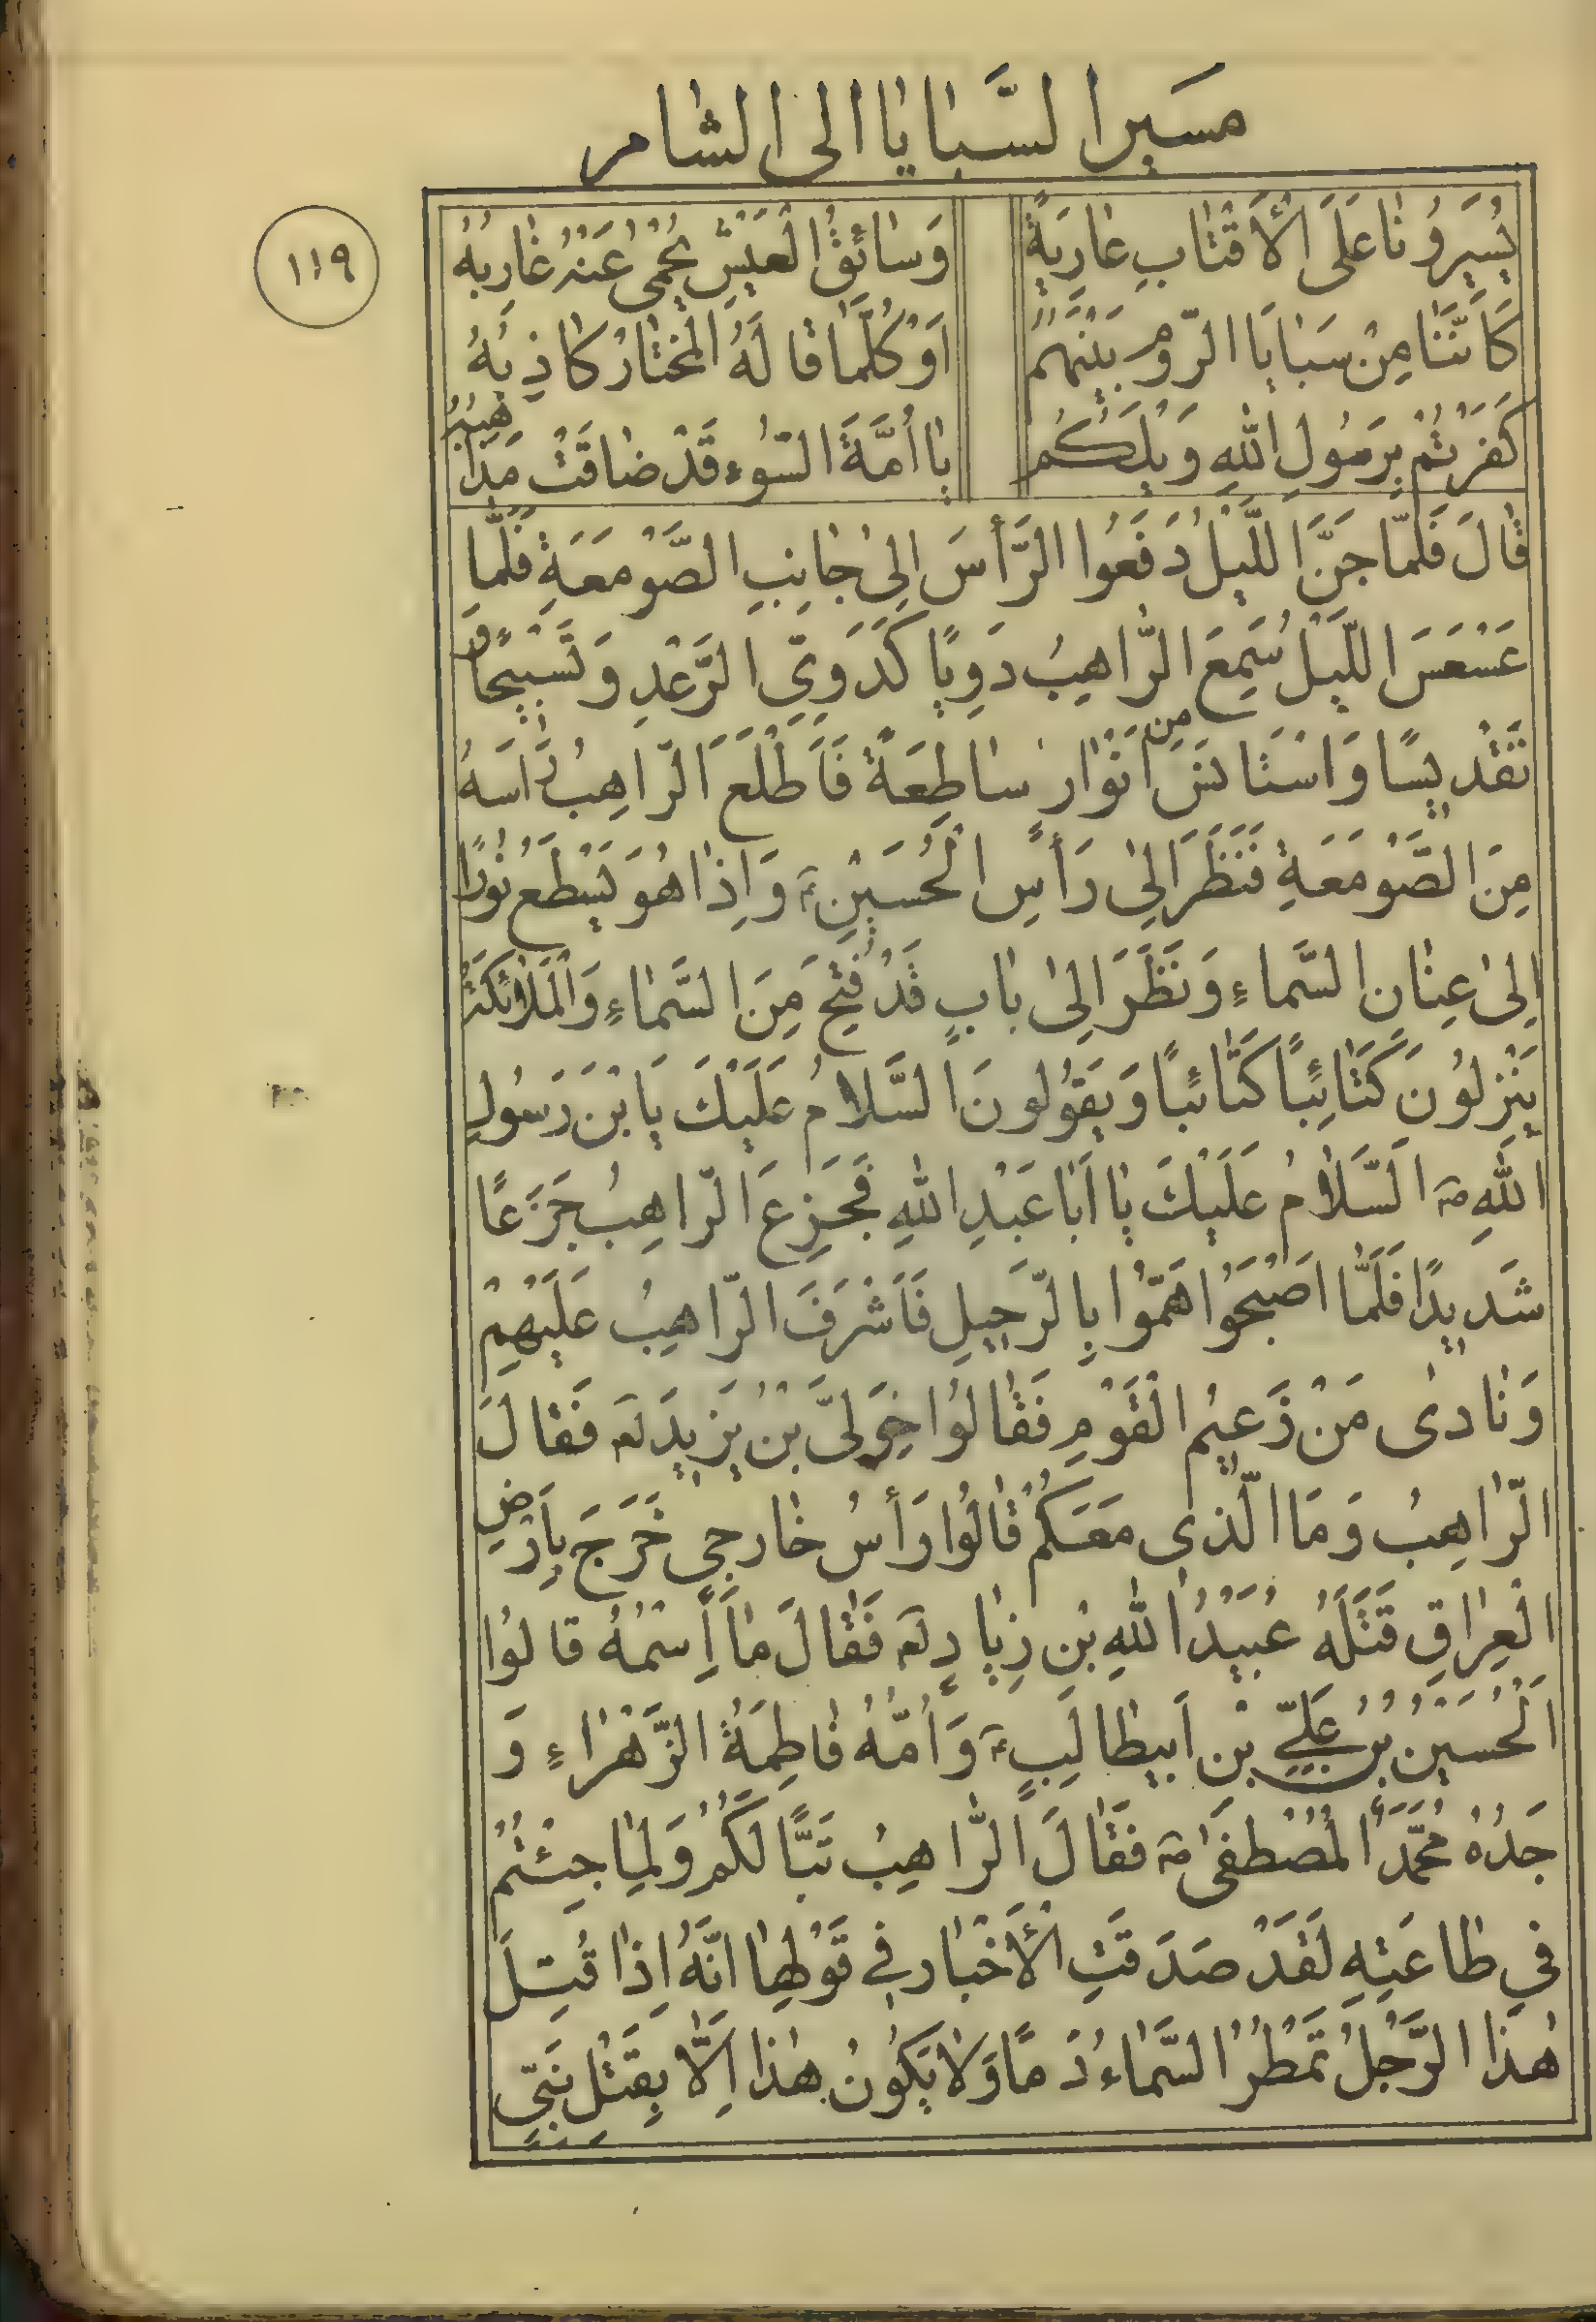 مسير السبايا الى الشام
١١٩
يُسَيِّرُونٰا عَلَى الْأَقْتٰابِ عٰارِيَةً وَسٰائِقُ الْعيسِ يُحْمىٰ عَنْهُ غٰارِبُهُ
كَاَنَّنٰا مِنْ سَبٰايَا الرّومِ بَيْنَهُمُ اَوْ كُلَّمٰا قٰالَهُ الْمُخْتٰارُ كاذِبُهُ
كَفَرْتُمْ بِرَسُولِ اللهِ وَيْلَكُمُ يٰا اُمَّةَ السّوُءِ قَدْ ضٰاقَتْ مَذٰاهِبُهُ
قٰالَ فَلَمّا جَنَّ اللَّيْلُ دَفَعُوا الرَّأسَ اِلىٰ جٰانِبِ الصَّوْمَعَةِ فَلَمّٰا
عَسْعَسَ اللَّيْلُ سَمِعَ الرّٰاهِبُ دَوِيًا كَدَوِيِّ الرَّعْدِ وَتَسْبيحًا وَ
تَقْديسًا وَاسْتَانَسَ مِن اَنْوٰارٍ سٰاطِعَةً فَاَطْلَعَ الرّاهِبُ رَاسَهُ
مِنَ الصَّوْمَعَةِ فَنَظَرَ اِلىٰ رَأسِ الْحُسَيْنِ ؑ وَاِذٰا هُوَ يَسْطَعُ نوُرًا
اِلىٰ عِنٰانِ السَّمٰاءِ وَنَظَرَ اِلىٰ بٰابٍ قَدْ فُتِحَ مِنَ السَّمٰاءِ وَالْمَلٰائِكَةُ
يَنْزِلُونَ كَتٰائِبًا كَتٰائِبًا وَيَقوُلونَ السَّلامُ عَلَيْكَ يَابْنَ رَسُولِ
اللهِ ؐ اَلسَّلٰامُ عَلَيْكَ يٰا اَبٰا عَبْدِ اللهِ فَجَزِعَ الرّاهِبُ جَزَعًا
شَديدًا فَلَمّٰا اَصْبَحُوا هَمّوُا بِالرَّحيلِ فَاَشْرَفَ الرّاهِبُ عَلَيْهِمْ
وَنٰادىٰ مَنْ زَعيمُ الْقَوْمِ فَقٰالوُا خَوَلىَّ بْنُ يَزيدَ لَعَ فَقٰالَ
الرّٰاهِبُ وَمَا الَّذى مَعَكُمْ قٰالُوا رَأسُ خٰارِجىٍ خَرَجَ بِاَرْضِ
الْعِرٰاقِ قَتَلَهُ عُبَيْدُ اللهِ بْنِ زِيٰادٍ لَعَ فَقٰالَ مٰا اِسْمُهُ قالوُا
اَلْحُسَيْنُ بْنُ عَلِيِّ بْنِ اَبيطٰالِبٍ ؑ وَاُمُّهُ فٰاطِمَةُ الزَّهْرٰاءِ وَ
جَدُهُ مُحَمَّدٌ الْمُصْطَفىٰ ؐ فَقٰالَ الرّٰاهِبُ تَبًّا لَكُمْ وَلِمٰا جِئْتُمْ
فىِ طٰاعَتِهِ لَقَدْ صَدَقَتِ الْأَخْبٰار فِي قَوْلِهٰا اَنَّهُ اِذٰا قُتِلَ
هٰذَا الرَّجُلُ تَمْطُرُ السَّمٰاءُ دَمًا وَلٰا يَكُونُ هٰذا اِلّٰا بِقَتْلِ نَبِيٍّ